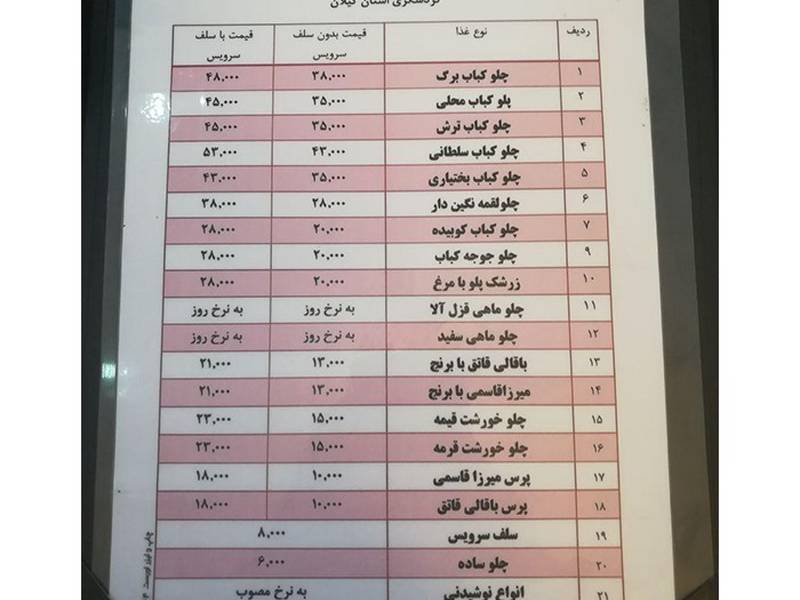 گردشگری استان گیلان
ردیف نوع غذا قیمت بدون سلف سرویس قیمت با سلف سرویس
۱ چلو کباب برگ ۳۸,۰۰۰ ۴۸,۰۰۰
۲ پلو کباب محلی ۳۵,۰۰۰ ۴۵,۰۰۰
۳ چلو کباب ترش ۳۵,۰۰۰ ۴۵,۰۰۰
۴ چلو کباب سلطانی ۴۳,۰۰۰ ۵۳,۰۰۰
۵ چلو کباب بختیاری ۳۵,۰۰۰ ۴۳,۰۰۰
۶ چلولقمه نگین دار ۲۸,۰۰۰ ۳۸,۰۰۰
۷ چلو کباب کوبیده ۲۰,۰۰۰ ۲۸,۰۰۰
۹ چلو جوجه کباب ۲۰,۰۰۰ ۲۸,۰۰۰
۱۰ زرشک پلو با مرغ ۲۰,۰۰۰ ۲۸,۰۰۰
۱۱ چلو ماهی قزل آلا به نرخ روز به نرخ روز
۱۲ چلو ماهی سفید به نرخ روز به نرخ روز
۱۳ باقالی قاتق با برنج ۱۳,۰۰۰ ۲۱,۰۰۰
۱۴ میرزاقاسمی با برنج ۱۳,۰۰۰ ۲۱,۰۰۰
۱۵ چلو خورشت قیمه ۱۵,۰۰۰ ۲۳,۰۰۰
۱۶ چلو خورشت قرمه ۱۵,۰۰۰ ۲۳,۰۰۰
۱۷ پرس میرزا قاسمی ۱۰,۰۰۰ ۱۸,۰۰۰
۱۸ پرس باقالی قاتق ۱۰,۰۰۰ ۱۸,۰۰۰
۱۹ سلف سرویس ۸,۰۰۰
۲۰ چلو ساده ۶,۰۰۰
۲۱ انواع نوشیدنی به نرخ مصوب